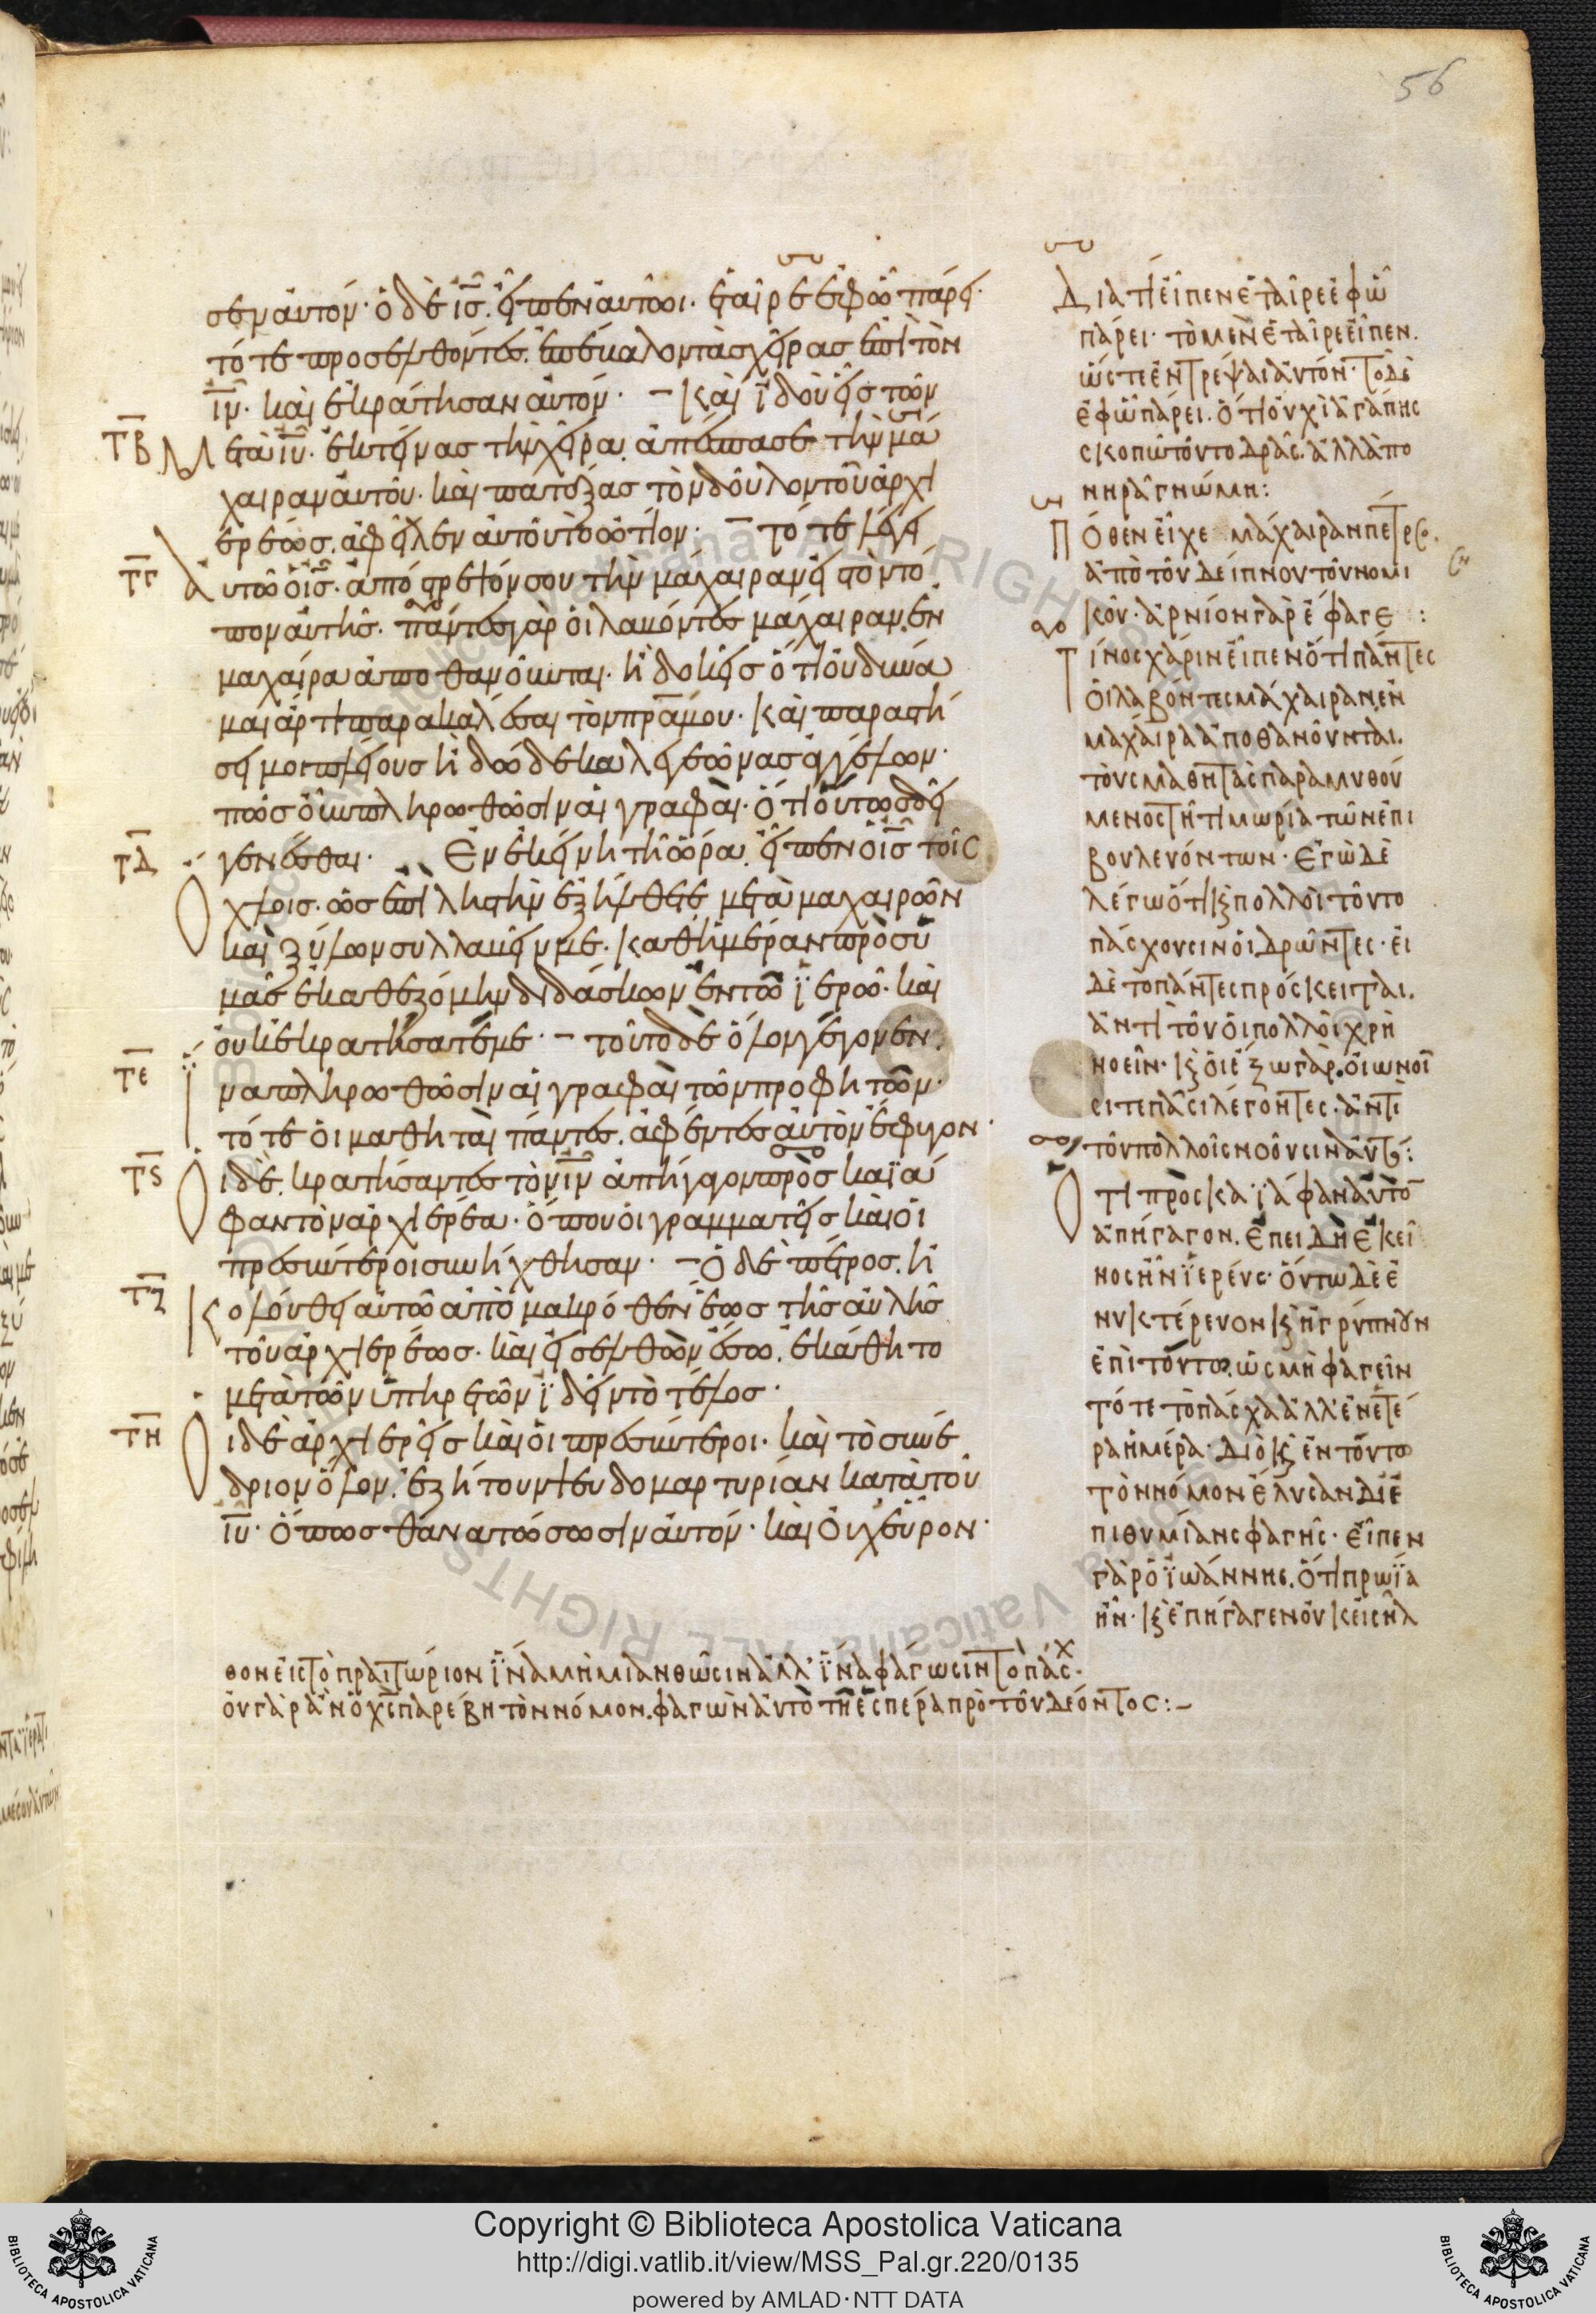 56
σεν αὐτόν· ὁ δὲ ι̅ς̅. εἶπεν αὐτῶι. ἑταῖρε ἐφ ὧ πάρει·
τότε προσελθόντες. ἐπέβαλον τὰς χεῖρας ἐπὶ τὸν
ι̅ν̅. καὶ ἐκράτησαν αὐτόν· – καὶ ἰδοὺ εἷς τῶν
τ̅β̅ Μετὰ ι̅υ̅. ἐκτείνας τὴν χεῖρα. ἀπέσπασε τὴν μά
χαιραν αὐτοῦ. καὶ πατάξας τὸν δοῦλον τοῦ ἀρχι
ερέως. ἀφεῖλεν αὐτοῦ τὸ ὠτίον· – τότε λέγει
τ̅γ̅ Αὐτῶ ὁ ι̅ς̅. ἀπόστρεψόν σου τὴν μάχαιραν εἰς τὸν τό
πον αὐτῆς. πάντες γὰρ οἱ λαβόντες μάχαιραν. ἐν
μαχαίρα ἀποθανοῦνται. ἢ δοκεῖς ὅτι οὐ δύνα
μαι ἄρτι παρακαλέσαι τὸν π̅ρ̅α̅ μου. καὶ παραστή
σει μοι πλείους ἢ δώδεκα λεγεῶνας ἀγγέλων·
πῶς οὖν πληρωθῶσιν αἱ γραφαί. ὅτι οὕτως δεῖ
τ̅δ̅ γενέσθαι· Ἐν ἐκείνη τῆ ὥρα. εἶπεν ὁ ι̅ς̅ τοῖς
Ὄχλοις. ὡς ἐπὶ ληστὴν ἐξήλθετε μετὰ μαχαιρῶν
καὶ ξύλων συλλαβεῖν με. καθ ἡμέραν πρὸς ὑ
μᾶς ἐκαθεζόμην διδάσκων ἐν τῶ ἱερῶ. καὶ
οὐκ ἐκρατήσατέ με· – τοῦτο δὲ ὅλον γέγονεν.
τ̅ε̅ ἵνα πληρωθῶσιν αἱ γραφαὶ τῶν προφητῶν·
τότε οἱ μαθηταὶ πάντες. ἀφέντες αὐτὸν ἔφυγον·
τ̅ς̅ Οἱ δὲ. κρατήσαντες τὸν ι̅ν̅ ἀπήγαγον πρὸς καϊά
φαν τὸν ἀρχιερέα. ὅπου οἱ γραμματεῖς καὶ οἱ
πρεσβύτεροι συνήχθησαν· – ὁ δὲ πέτρος. ἠ
τ̅ζ̅ Κολούθει αὐτῶ ἀπὸ μακρόθεν ἕως τῆς αὐλῆς
τοῦ ἀρχιερέως. καὶ εἰσελθὼν ἔσω. ἐκάθητο
μετὰ τῶν ὑπηρετῶν ἰδεῖν τὸ τέλος·
τ̅η̅ Οἱ δὲ ἀρχιερεῖς καὶ οἱ πρεσβύτεροι. καὶ τὸ συνέ
δριον ὅλον. ἐζήτουν ψευδομαρτυρίαν κατὰ τοῦ
ι̅υ̅. ὅπως θανατώσωσιν αὐτόν. καὶ οὐχ εὗρον·
Διατί εἶπεν ἑταῖρε ἐφ ὧ
πάρει· τὸ μὲν ἑταῖρε εἶπεν.
ὥστε ἐντρέψαι αὐτόν· τὸ δὲ
ἐφ ὧ πάρει. ὅτι οὐχὶ ἀγάπης
σκοπῶ τοῦτο δρᾶς. ἀλλὰ πο
νηρᾶ γνώμη:
Πόθεν εἶχε μάχαιραν πέτρος.
ἀπὸ τοῦ δείπνου τοῦ νομι
κοῦ. ἀρνίον γὰρ ἔφαγε:
Τίνος χάριν εἶπεν ὅτι πάντες
οἱ λαβόντες μάχαιραν. ἐν
μαχαίρα ἀποθανοῦνται.
τοὺς μαθητὰς παραμυθού
μενος τῆ τιμωρία τῶν ἐπι
βουλευόντων· ἐγὼ δὲ
λέγω ὅτι ϗ πολλοὶ τοῦτο
πάσχουσιν οἱ δρῶντες· εἰ
δὲ τὸ πάντες πρόσκειται.
ἀντὶ τοῦ οἱ πολλοὶ χρὴ
νοεῖν· ϗ οἱ ἔξω γὰρ. οἰωνοῖ
σί τε πᾶσι λέγοντες. ἀντὶ
τοῦ πολλοῖς νοοῦσιν αὐτό:
Ὅτι πρὸς καϊάφαν αὐτὸν
ἀπήγαγον. ἐπειδὴ ἐκεῖ
νος ἦν ἱερεύς· οὕτω δὲ ἐ
νυκτέρευον ϗ ἠγρύπνουν
ἐπὶ τούτω. ὡς μὴ φαγεῖν
τότε τὸ πάσχα ἀλλ ἐν ἑτέ
ρα ἡμέρα· διὸ ϗ ἐν τούτω
τὸν νόμον ἔλυσαν δι ἐ
πιθυμίαν σφαγῆς· εἶπεν
γὰρ ὁ ἰωάννης. ὅτι πρωΐα
ἦν· ϗ ἐπήγαγεν οὐκ εἰσῆλ
θον εἰς τὸ πραιτώριον ἵνα μὴ μιανθῶσιν ἀλλ' ἵνα φάγωσιν τὸ πάσχ·
οὐ γὰρ ἂν ὁ χ̅ς̅ παρέβη τὸν νόμον. φαγὼν αὐτὸ τῆ ἑσπέρα πρὸ τοῦ δέοντος:–
Copyright © Biblioteca Apostolica Vaticana
http://digi.vatlib.it/view/MSS_Pal.gr.220/0135
powered by AMLAD·NTT DATA
BIBLIOTECA APOSTOLICA VATICANA
BIBLIOTECA APOSTOLICA VATICANA